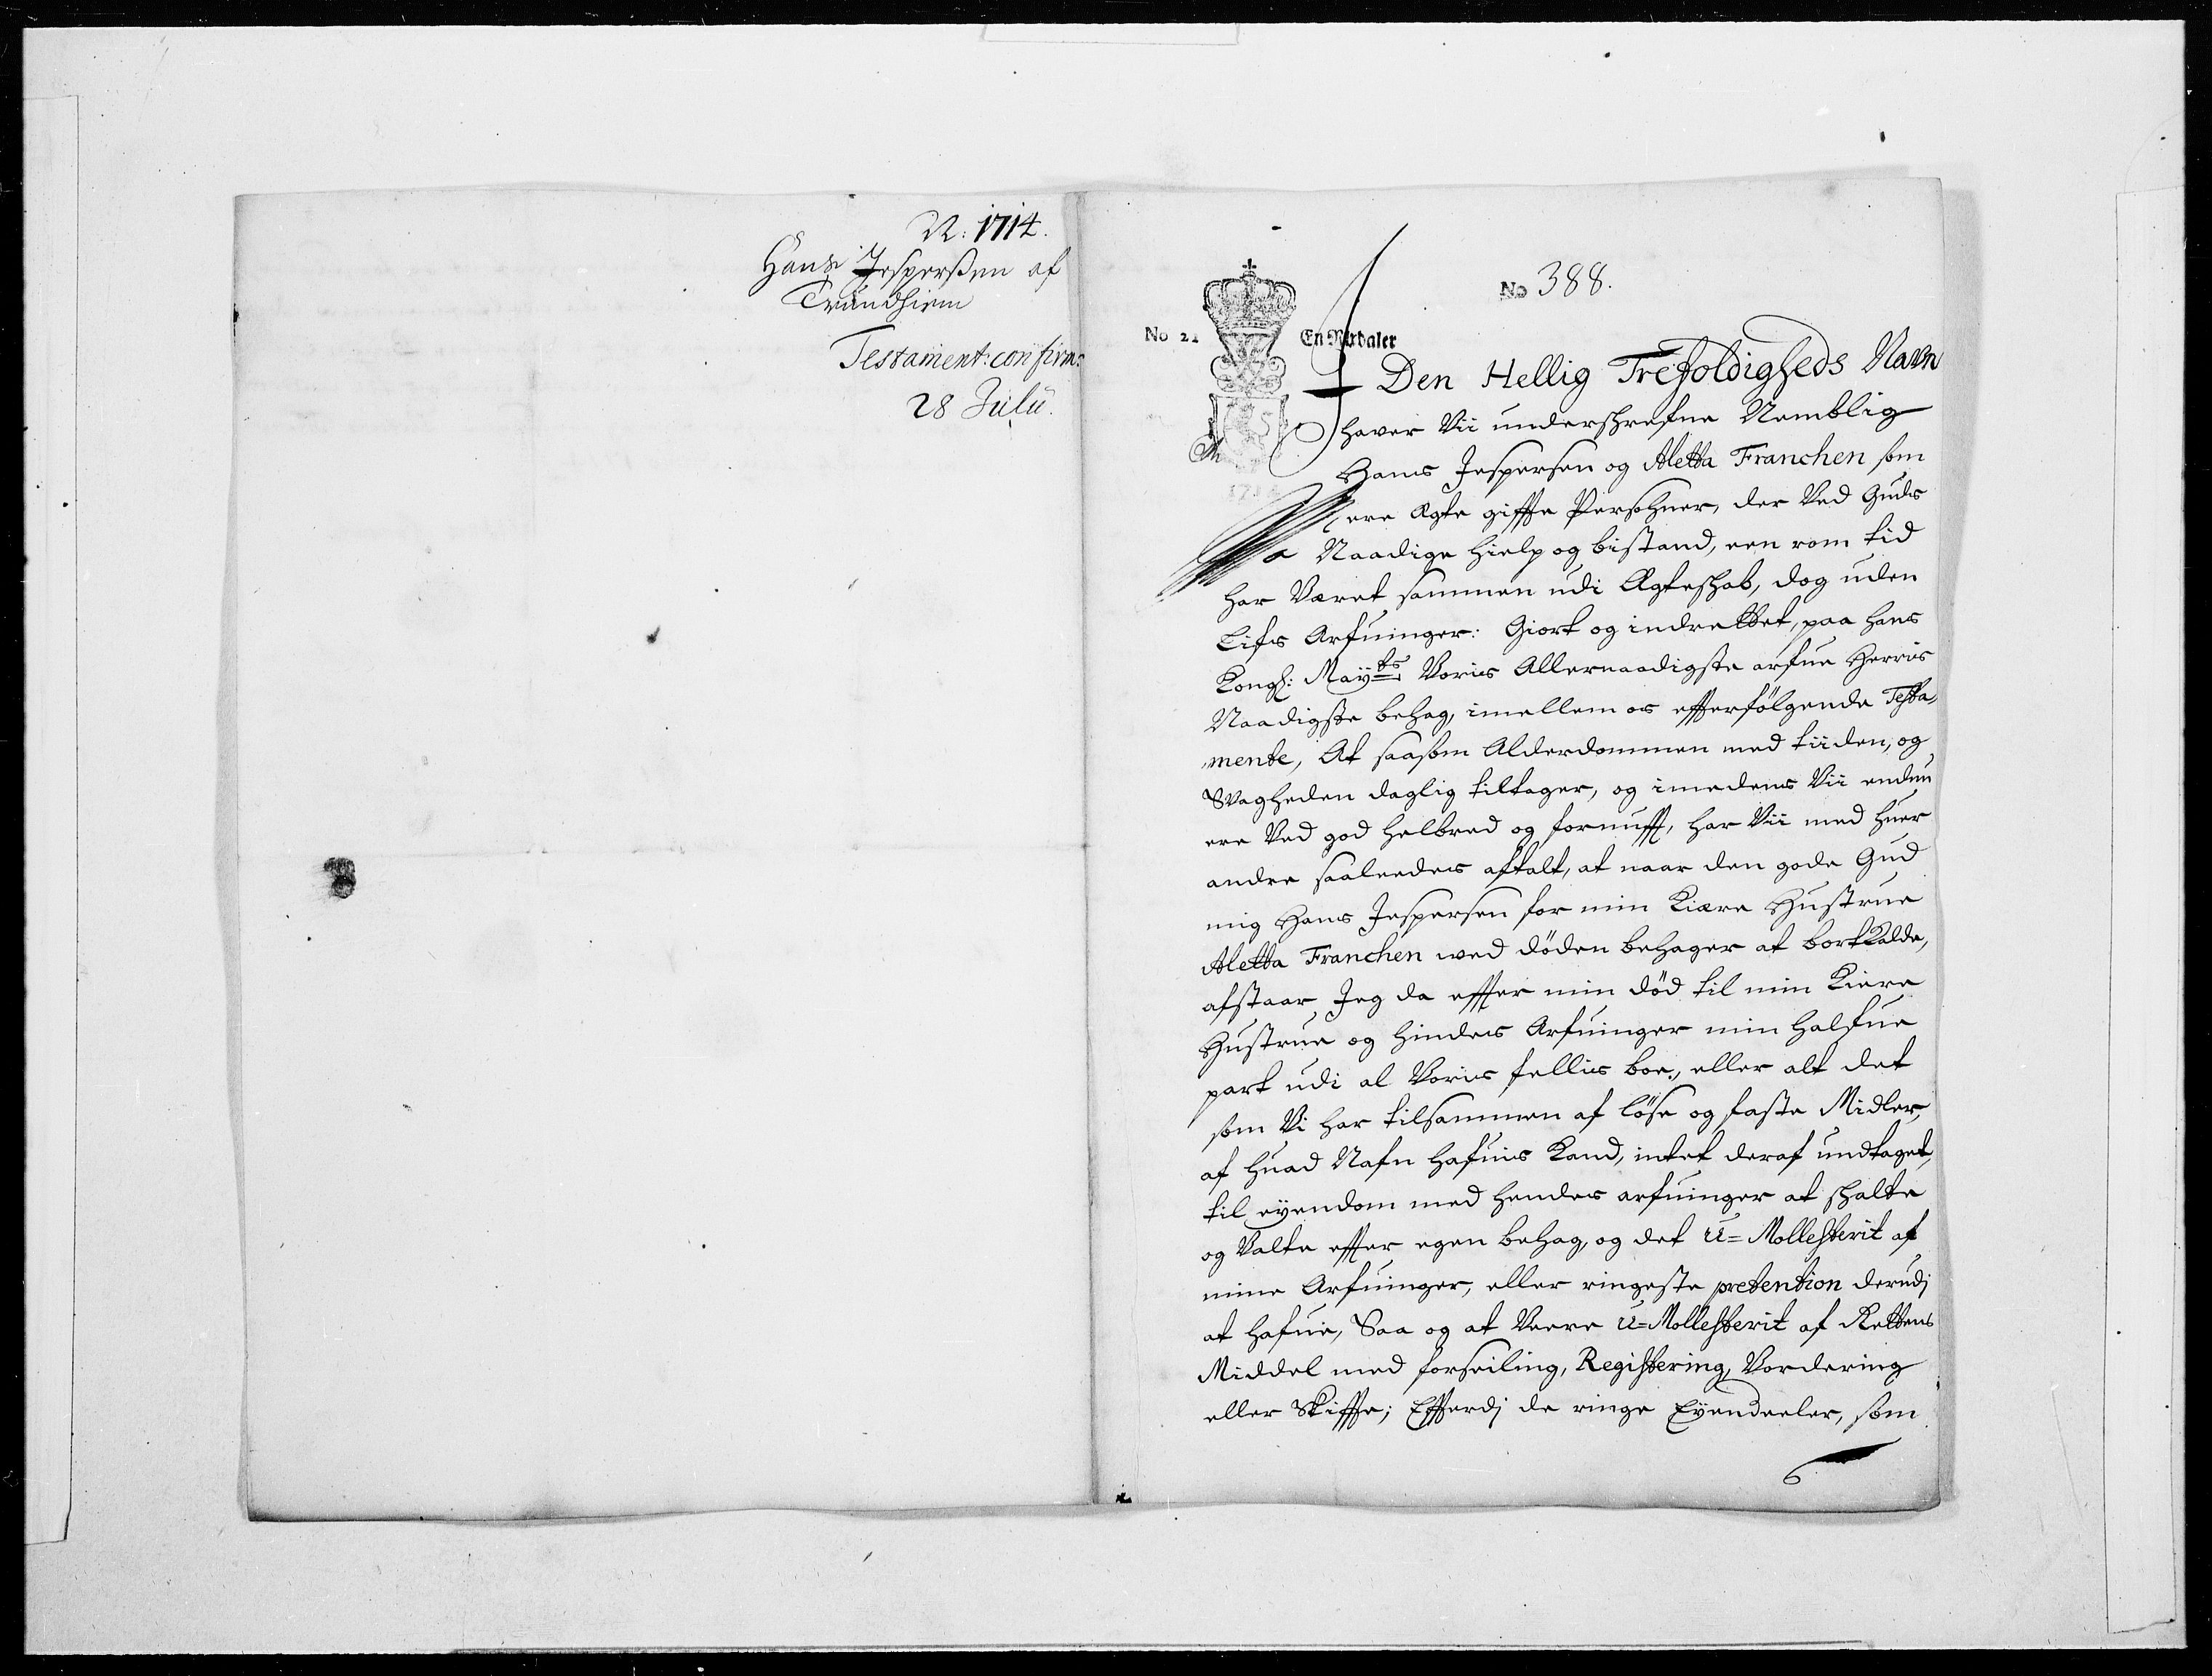 N: 1714.
Hans Jesperßen af
Trundhiem
Testament: confirm:
28 Julii.
No 388.
No 21 En Rixdaler
1714
I Den Hellig Trefoldigheds Navn
haver Vii undershrefne Nemblig
Hans Jespersen og Aletta Franchen som
ere Ægte giffte Persohner, der Ved Guds
Naadige hielp og bistand, een rom tid
har Været sammen udi Ægteshab, dog uden
Lifs Arfuinger: Giort og indrettet, paa hans
Kongl: Mayts Voris Allernaadigste arfue Herris
Naadigste behag, imellem os effterfölgende Testa,
,mente, At saasom Alderdommen med tiiden, og
Svagheden daglig tiltager, og imedens Vii endnu
ere Ved god helbred og fornufft, har Vii med huer
andre saaleedes aftalt, at naar den gode Gud
mig Hans Jespersen for min Kiære Hustrue
Aletta Franchen wed döden behager at bortkalde,
afstaar Jeg da effter min död til min Kiere
Hustrue og hindes Arfuinger min halfue
part udi al Voris fellis boe, eller alt det
som Vi har tilsammen af löse og faste Midler,
af huad Nafn hafuis Kand, intet deraf undtaget,
til eyendom med hendes arfuinger at shalte
og Valte effter egen behag, og det U=Mollesterit af
mine Arfuinger, eller ringeste pretention derudj
at hafue, Saa og at Veere U=Mollesterit af Rettens
Middel med forseiling, Registering, Vordering
eller Skiffte; Effterdj de ringe Eyendeeler, som